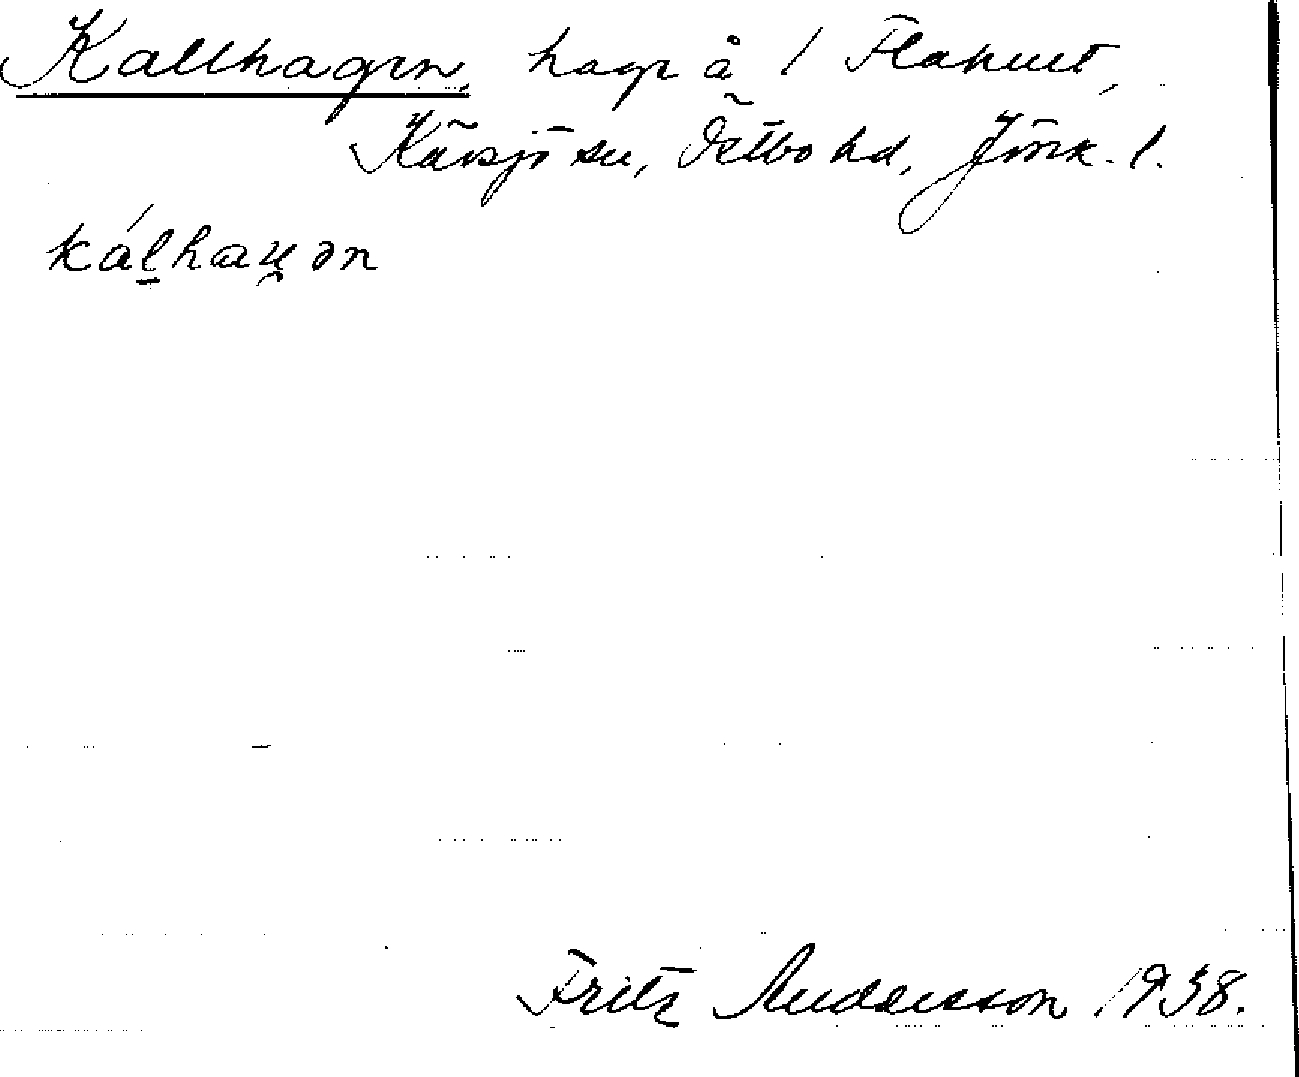 Kallhagen, hage å 1 Flahult,
Kävsjö sn, Östbo hd, Jönk. l.
kálhaɥən
Fritz Andersson 1938.